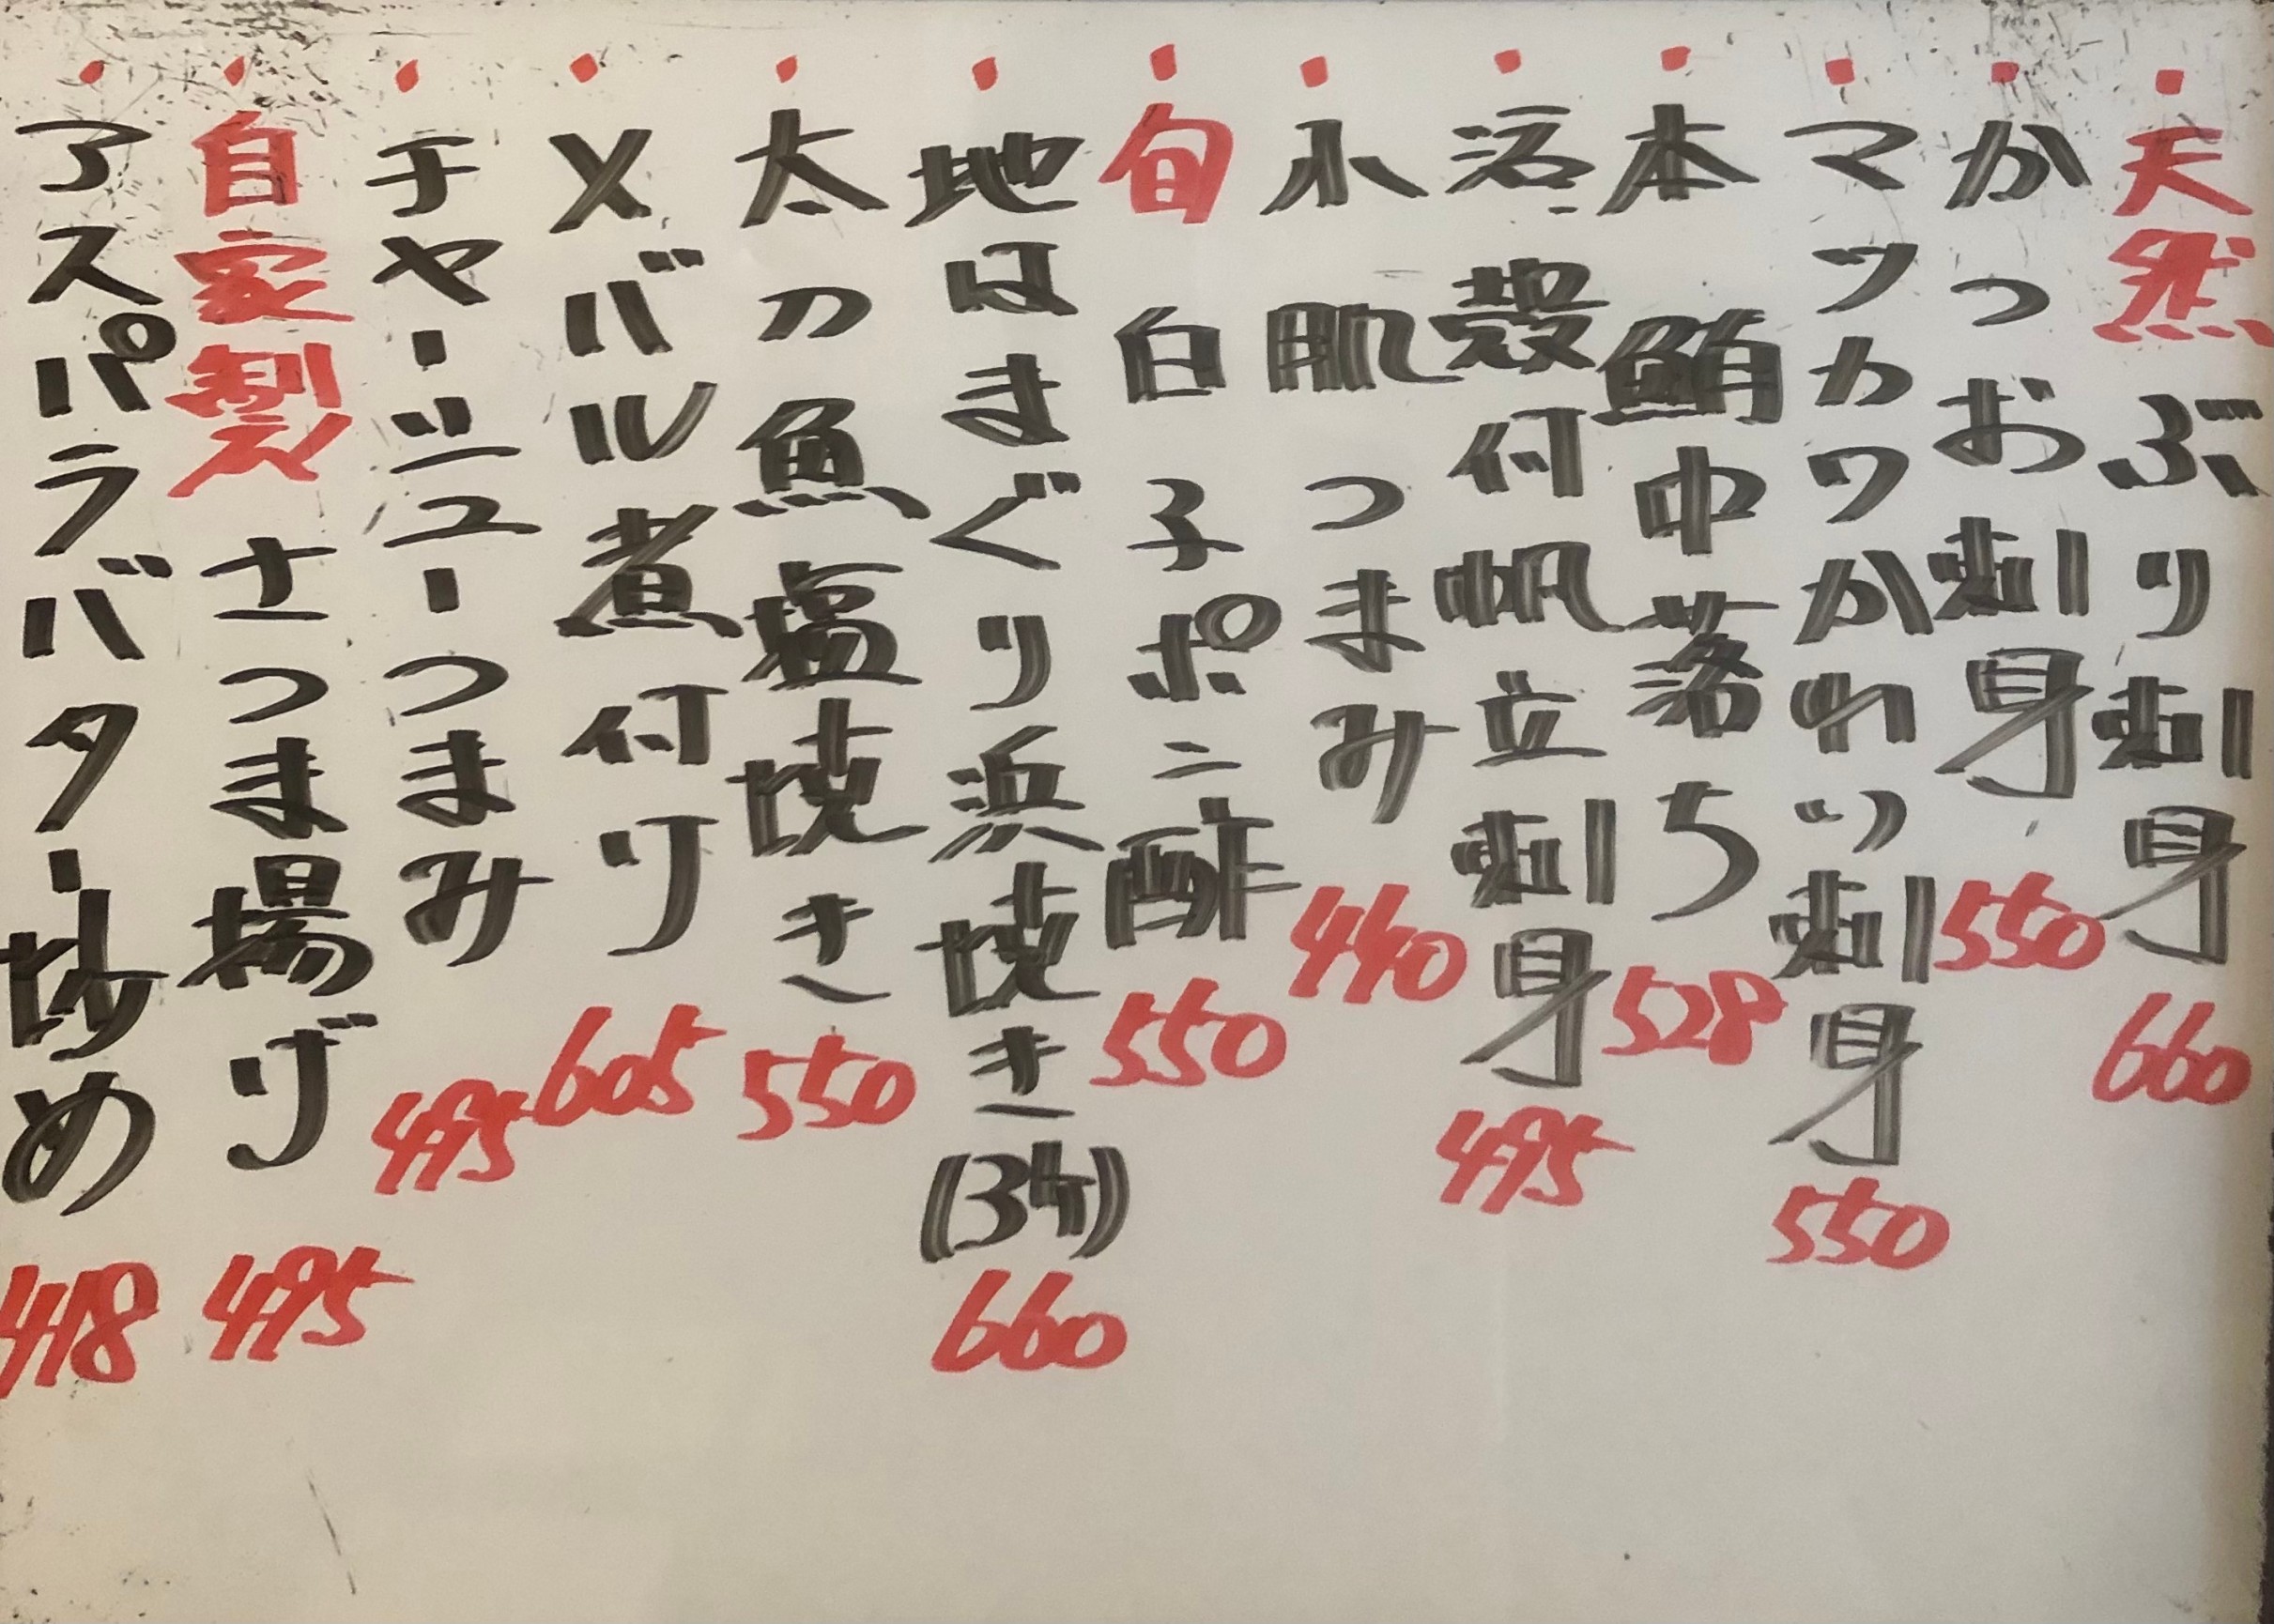 ・天然ぶり刺身 660
・かつお刺身 550
・マツカワかれい刺身 550
・本鮪中落ち 528
・活殻付帆立刺身 495
・氷肌つまみ 440
・旬白子ポン酢 550
・地はまぐり浜焼き(3ケ) 660
・太刀魚塩焼き 550
・メバル煮付け 605
・チャーシューつまみ 495
・自家製さつま揚げ 495
・アスパラバター炒め 418